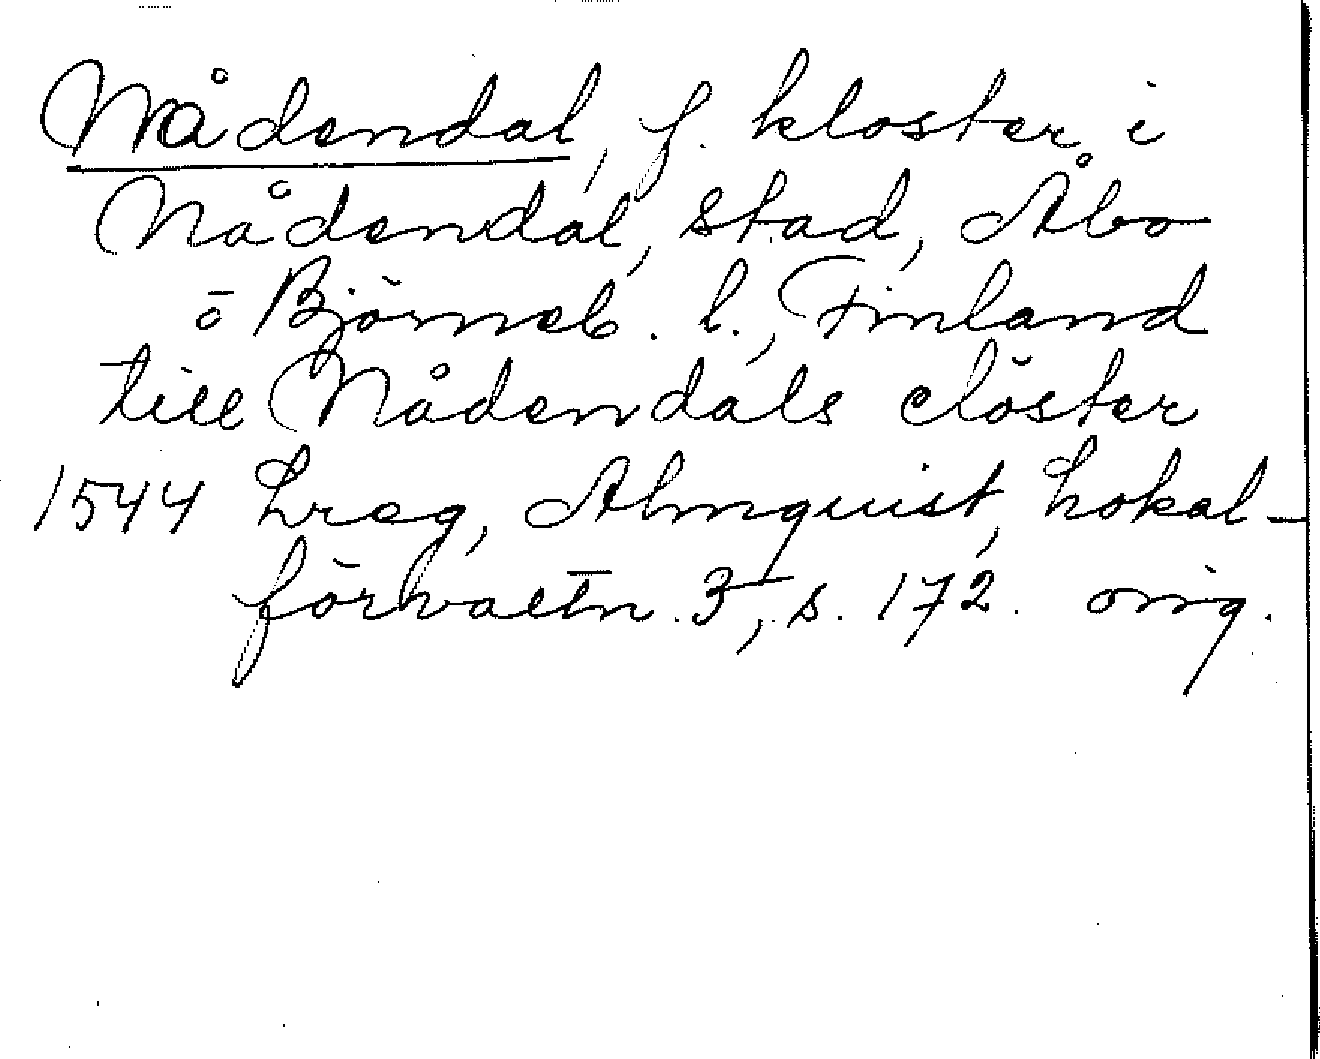 Nådendal, f. kloster i
Nådendal, stad, Åbo
o Björneb. l., Finland
till Nådendals closter
1544 Lreg, Almquist, Lokal-
förvaltn. 3, s. 172. orig.